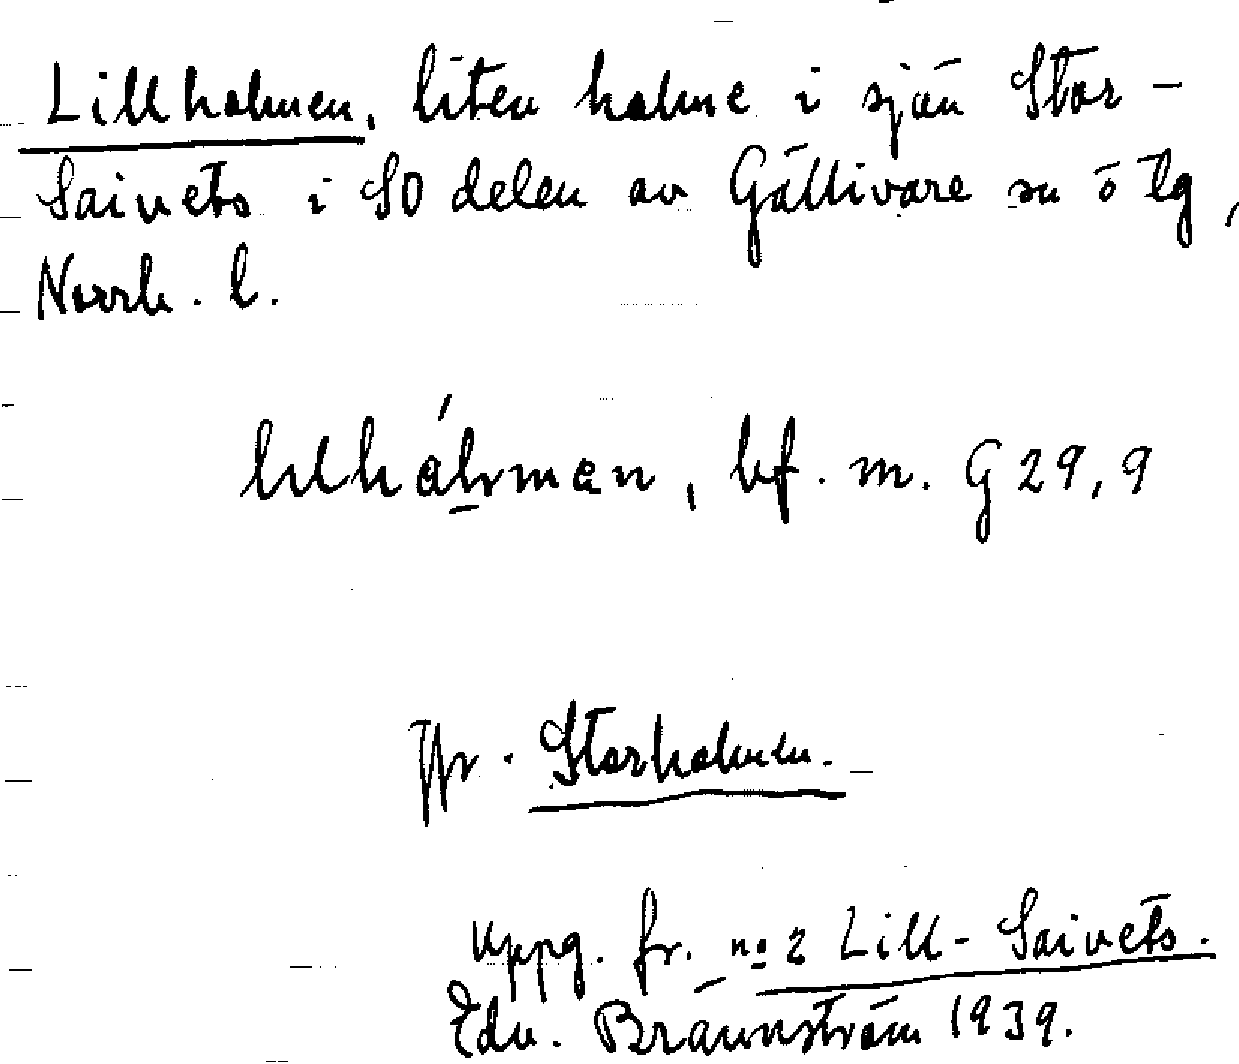 Lillholmen, liten holme i sjön Stor-
Saivets i SO delen av Gällivare sn ö lg,
Norrb. l.
lılhálmen, bf. m. G 29,9
Jfr. Storholmen.
Uppg. fr. no 2 Lill-Saivets.
Edv. Brännström 1939.